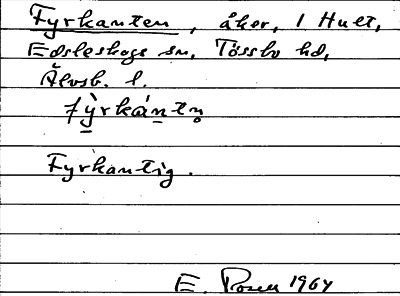 Fyrkanten, åker, 1 Hult,
Edsleskogs sn, Tössbo hd,
Älvsb. l.
fỳ̲rkán̲tn̥
Fyrkantig.
E. Rosell 1964